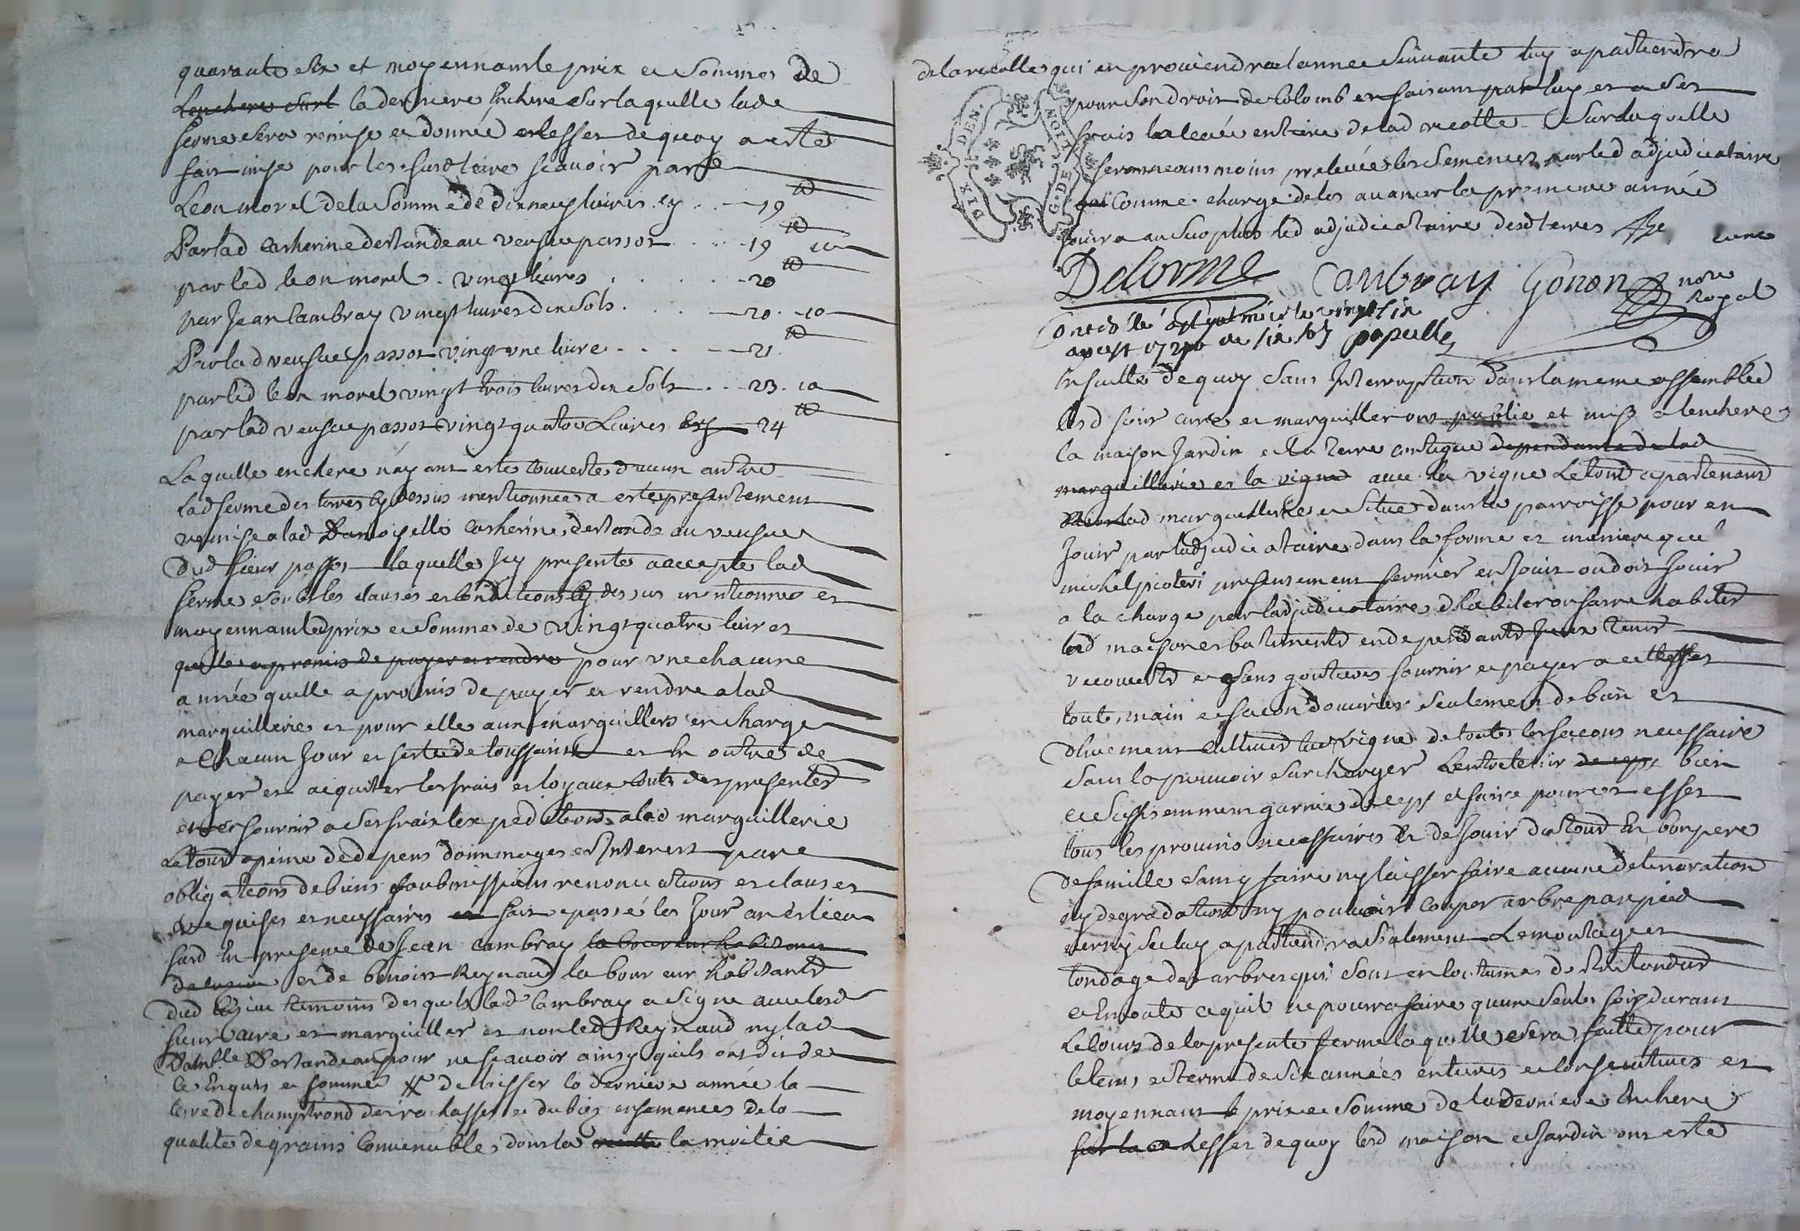 quarante six et moyennant le prix et Sommes de
Lenchere Surl la derniere Enchere Sur laquelle lade
ferme Sera remise et donnée et lesfet de quoy a esté
fait mise pour les Susd terres Scavoir par le
Leon morel de la Somme de dixneuf livres cy . . — 19 tt
Par lad Catherine destandeau veufue passot . . . . 19 10
par led leon morel . vingt livres . . . . . . 20 tt
par Jean Cambray vingt livres dix Sols . . . . 20 . 10
Par lad veufue passot vingt une livre . . . . 21 tt
par led leon morel vingt trois livres dix Sols . . 23 . 10
par lad veufue passot vingt quatre Livres cy 24 tt
Laquelle enchere nayant esté couverte daucun autre
lad ferme des terres cy dessus mentionnées a esté presentement
remise a lad Damoiselle Catherine destandeau veufue
dud Sieur passot laquelle Icy presente a accepté lad
ferme Soub les clauses et conditions cy dessus mentionnés et
moyennant led prix et Somme de vingt quatre livres
quelle a promis de payer et rendre pour une chacune
année quelle a promis de payer et rendre a lad
marguillerie et pour elle aux marguillers en charge
a Chacun Jour et feste de toussaint et En outre de
payer et acquitter les frais et loyaux couts des presentes
et en fournir a Ses frais lexpedition a lad marguillerie
Le tout a peine de depens dommages et Interest par
obligations de biens Soubmissions renonciations et clauses
requises et necessaires fait et passé les Jour an et lieu
Susd En presence de Jean Cambray laboureur habitant
et de benoist Reynaud laboureur habitants
dud lieu temoins desquels led Cambray a Signé avec lesd
Sieur Curé et marguiller et non led Reynaud ny lad
Damlle Destandeau pour ne Scavoir ainsy quils ont dit de
ce Enquis et Sommé de laisser la derniere année la
terre de champtrond
qualité de grains Convenables dont la la moitié
de la recolte qui en proviendra lannee Suivante luy apartiendra
pour Son droit de Colomb en faisant par luy et a Ses
frais la levée entiere de lad recolte Sur laquelle
Seront neanmoins prelevées les Semences par led adjudicataire
Comme chargé de les avancer la premiere année
Jouira au Surplus led adjudicataire desd terres
Delorme Cambray Gonon nore Royal
Controllé le vingt Six
aoust papelle
Ensuitte de quoy Sans Interruption dans la meme assemblée
lesd Sieur curé et marguiller ont publié et mis a lenchere
la maison Jardin et la terre contigue dependante de lad
marguillerie et la vigne avec la vigne Le tout apartenant
a lad marguillerie et Situé dans la parroisse pour en
Jouir par ladjudicataire dans la forme et maniere que
michel picoteri presentement fermier en Jouit ou doit Jouir
a la charge par ladjudicataire dhabiter ou faire habiter
lesd maison et batiments en dependants Iceux tenir
recouverts et Sans goutieres fournir et payer a cet effet
toute main et facon douvrier Seulement de bien et
duement cultiver la vigne de toutes les facons necessaire
Sans la pouvoir Surcharger Lentretenir de ceps bien
et Suffisemment garnie de ceps et faire pour cet effet
tous les provins necessaires Et de Jouir du tout En bon pere
de famille Sans y faire ny laisser faire aucune deterioration
ny degradation ny pouvoir couper arbre par pied
luy apartiendra Seulement Lemoutage et
tondage des arbres qui Sont en coutumes d Estre tondus
et Emouté et quil ne pourra faire quune Seule fois durant
Le cours de la presente ferme laquelle Sera faitte pour
le tems et terme de Six années entieres et consecutives et
moyennant le prix et Somme de la derniere Enchere
Sur la a Lesfet de quoy lesd maison et Jardin ont esté